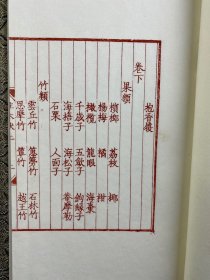 抱香履
卷下
果類
檳榔 荔枝 椰
楊梅 橘 柑
橄欖 龍眼 海棗
千歲子 五斂子 鉤緣子
海梧子 海松子 菴摩勒
石栗 人面子
竹類
雲丘竹 簩竹 石林竹
思摩竹 簞竹 越王竹